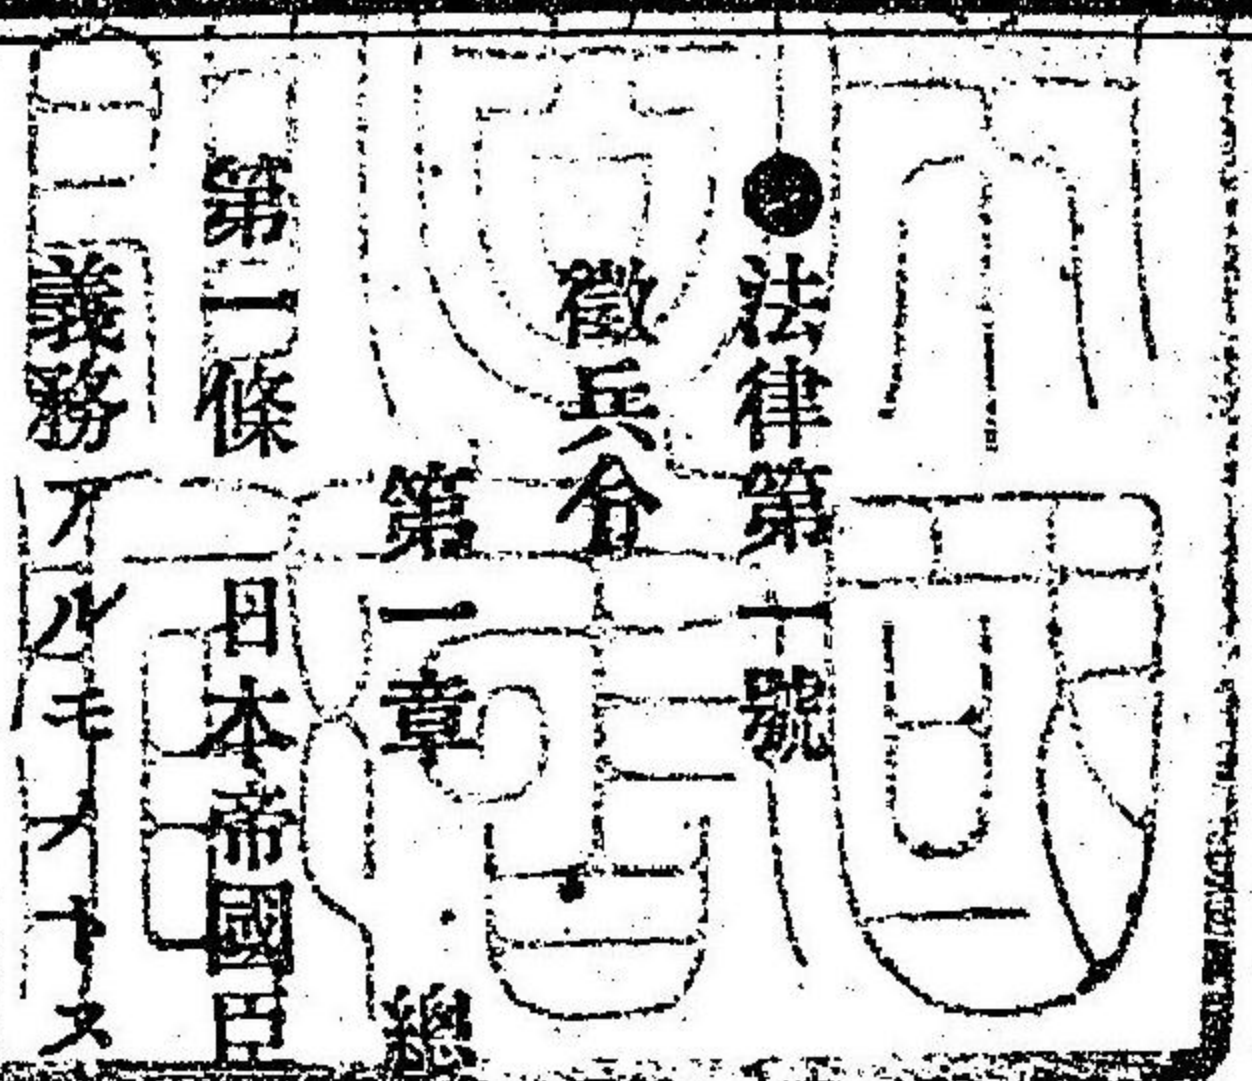 ●法律第一號
徵兵令
第一章 總
第一條 日本帝國臣
義務アルモノトス